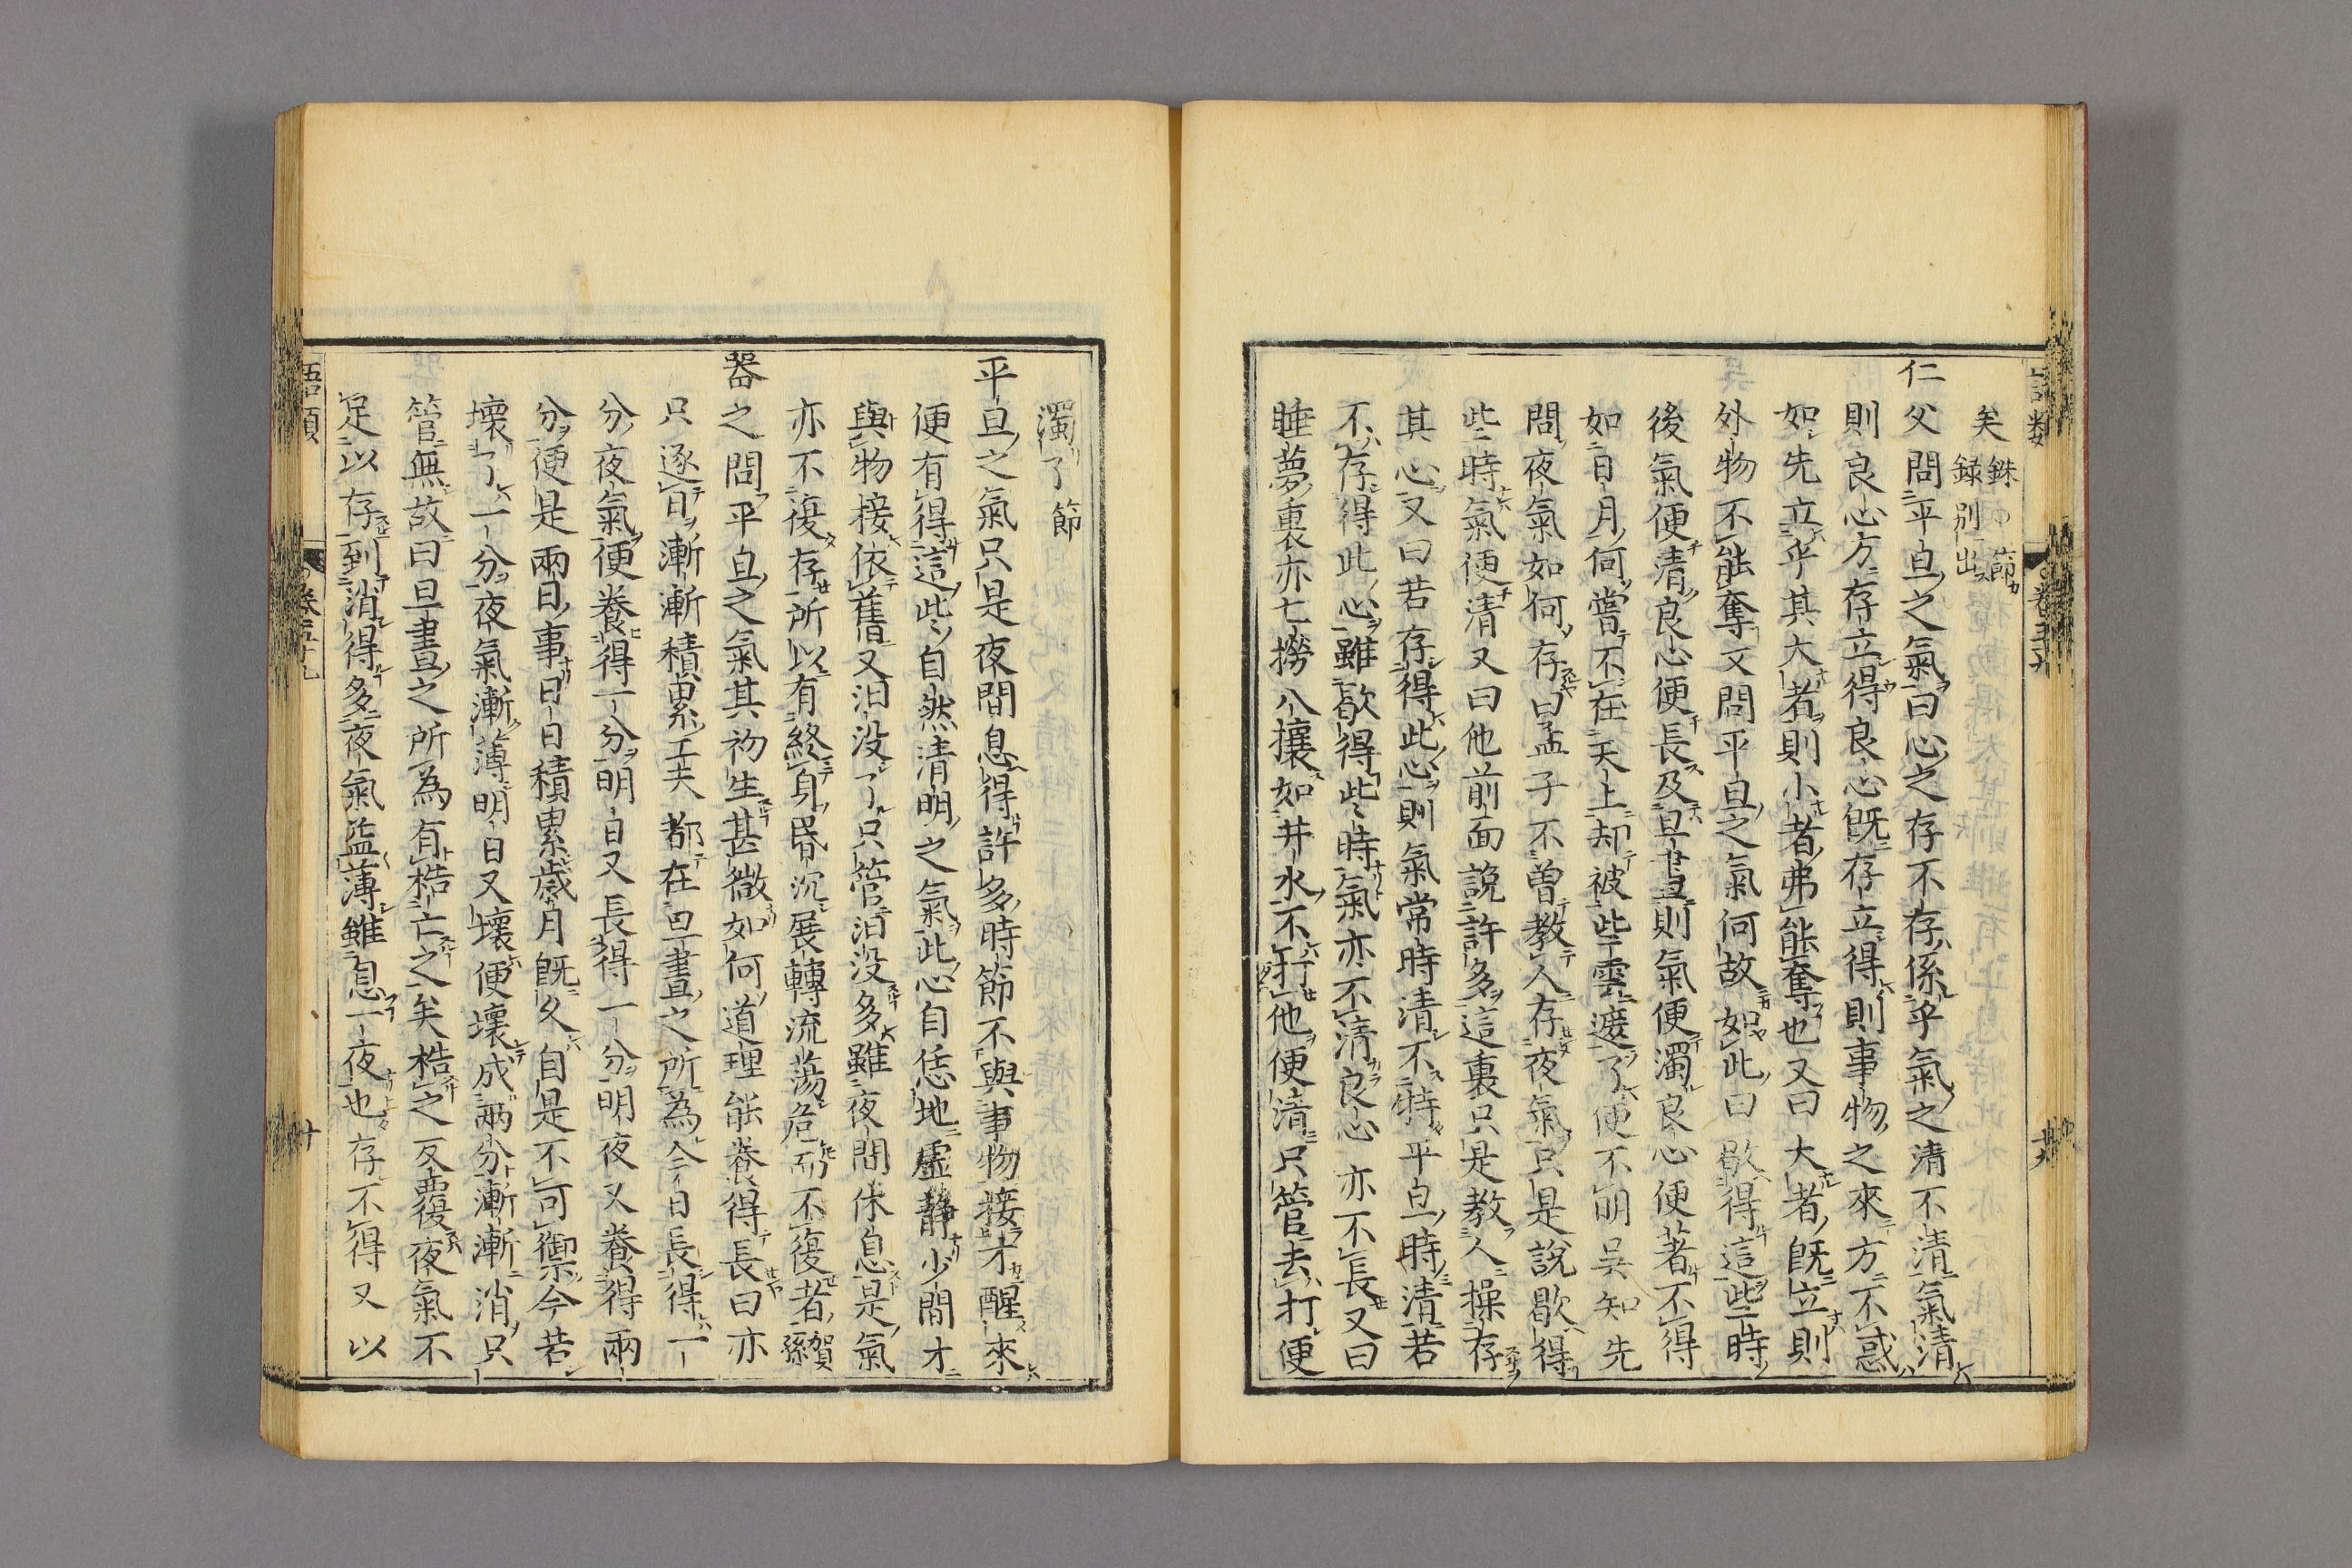 語類 卷五十九
矣 銖 節錄別出
仁父問平旦之氣曰心之存不存係乎氣之清不清氣清
則良心方存立得良心旣存立得則事物之來方不惑
如先立乎其大者則小者弗能奪也又曰大者旣立則
外物不能奪又問平旦之氣何故如此曰歇得這些時
後氣便清良心便長及旦晝則氣便濁良心便著不得
如日月何嘗不在天上却被些雲遮了便不明吳知先
問夜氣如何存曰孟子不曾教人存夜氣只是說歇得
些時氣便清又曰他前面說許多這裏只是教人操存
其心又曰若存得此心則氣常時清不特平旦時清若
不存得此心雖歇得些時氣亦不清良心亦不長又曰
睡夢裏亦七撈八攘如井水不打他便清只管去打便
濁了節
平旦之氣只是夜間息得許多時節不與事物接才醒來
便有得這些自然清明之氣此心自恁地虛靜少間才
與物接依舊又汩没了只管汩没多雖夜間休息是氣
亦不復存所以有終身昏沉展轉流蕩危而不復者賀孫
器之問平旦之氣其初生甚微如何道理能養得長曰亦
只逐日漸漸積累工夫都在旦晝之所為今日長得一
分夜氣便養得一分明日又長得一分明夜又養得兩
分便是兩日事日日積累歲月旣久自是不可禦今若
壞了一分夜氣漸薄明日又壞便壞成兩分漸漸消只
管無故曰旦晝之所為有梏亡之矣梏之反覆夜氣不
足以存到消得多夜氣益薄雖息一夜也存不得又以
語類 卷五十九 廿